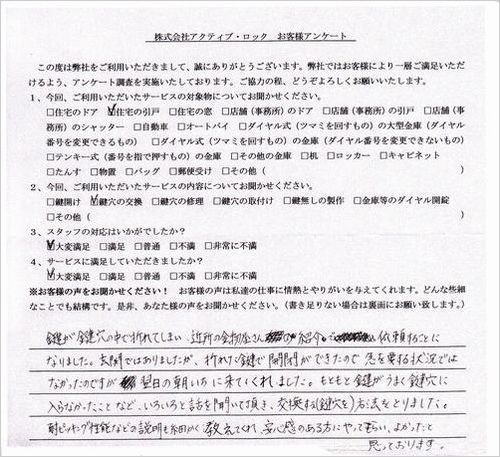 株式会社アクティブ・ロック お客様アンケート
この度は弊社をご利用いただきまして、誠にありがとうございます。弊社ではお客様により一層ご満足いただ
けるよう、アンケート調査を実施いたしております。ご協力の程、どうぞよろしくお願いいたします。
1、今回、ご利用いただいたサービスの対象物についてお聞かせください。
□住宅のドア ☑住宅の引戸 □住宅の窓 □店舗(事務所)のドア □店舗(事務所)の引戸 □店舗(事
務所)のシャッター □自動車 □オートバイ □ダイヤル式(ツマミを回すもの)の大型金庫(ダイヤル
番号を変更できるもの) □ダイヤル式(ツマミを回すもの)の金庫(ダイヤル番号を変更できないもの)
□テンキー式(番号を指で押すもの)の金庫 □その他の金庫 □机 □ロッカー □キャビネット
□たんす □物置 □バッグ □郵便受け □その他(
2、今回、ご利用いただいたサービスの内容についてお聞かせください。
□鍵開け ☑鍵穴の交換 □鍵穴の修理 □鍵穴の取付け □鍵無しの製作 □金庫等のダイヤル開錠
□その他( )
3、スタッフの対応はいかがでしたか?
☑大変満足 □満足 □普通 □不満 □非常に不満
4、サービスに満足していただきましたか?
☑大変満足 □満足 □普通 □不満 □非常に不満
※お客様の声をお聞かせください! お客様の声は私達の仕事に情熱とやりがいを与えてくれます。どんな些細
なことでも結構です。是非、あなた様の声をお聞かせください。(書き足りない場合は裏面にお願い致します。)
鍵が鍵穴の中で折れてしまい、近所の金物屋さん 紹介 依頼することに
なりました。玄関ではありましたが、折れた鍵で開閉ができたので急を要する状況では
なかったのですが 翌日の朝いちに来てくれました。もともと鍵がうまく鍵穴に
入らなかったことなど、いろいろと話を聞いて頂き、交換する(鍵穴を)方法をとりました。
耐ピッキング性能などの説明も細かく教えてくれ、安心感のある方にやってもらい、よかったと
思っております。